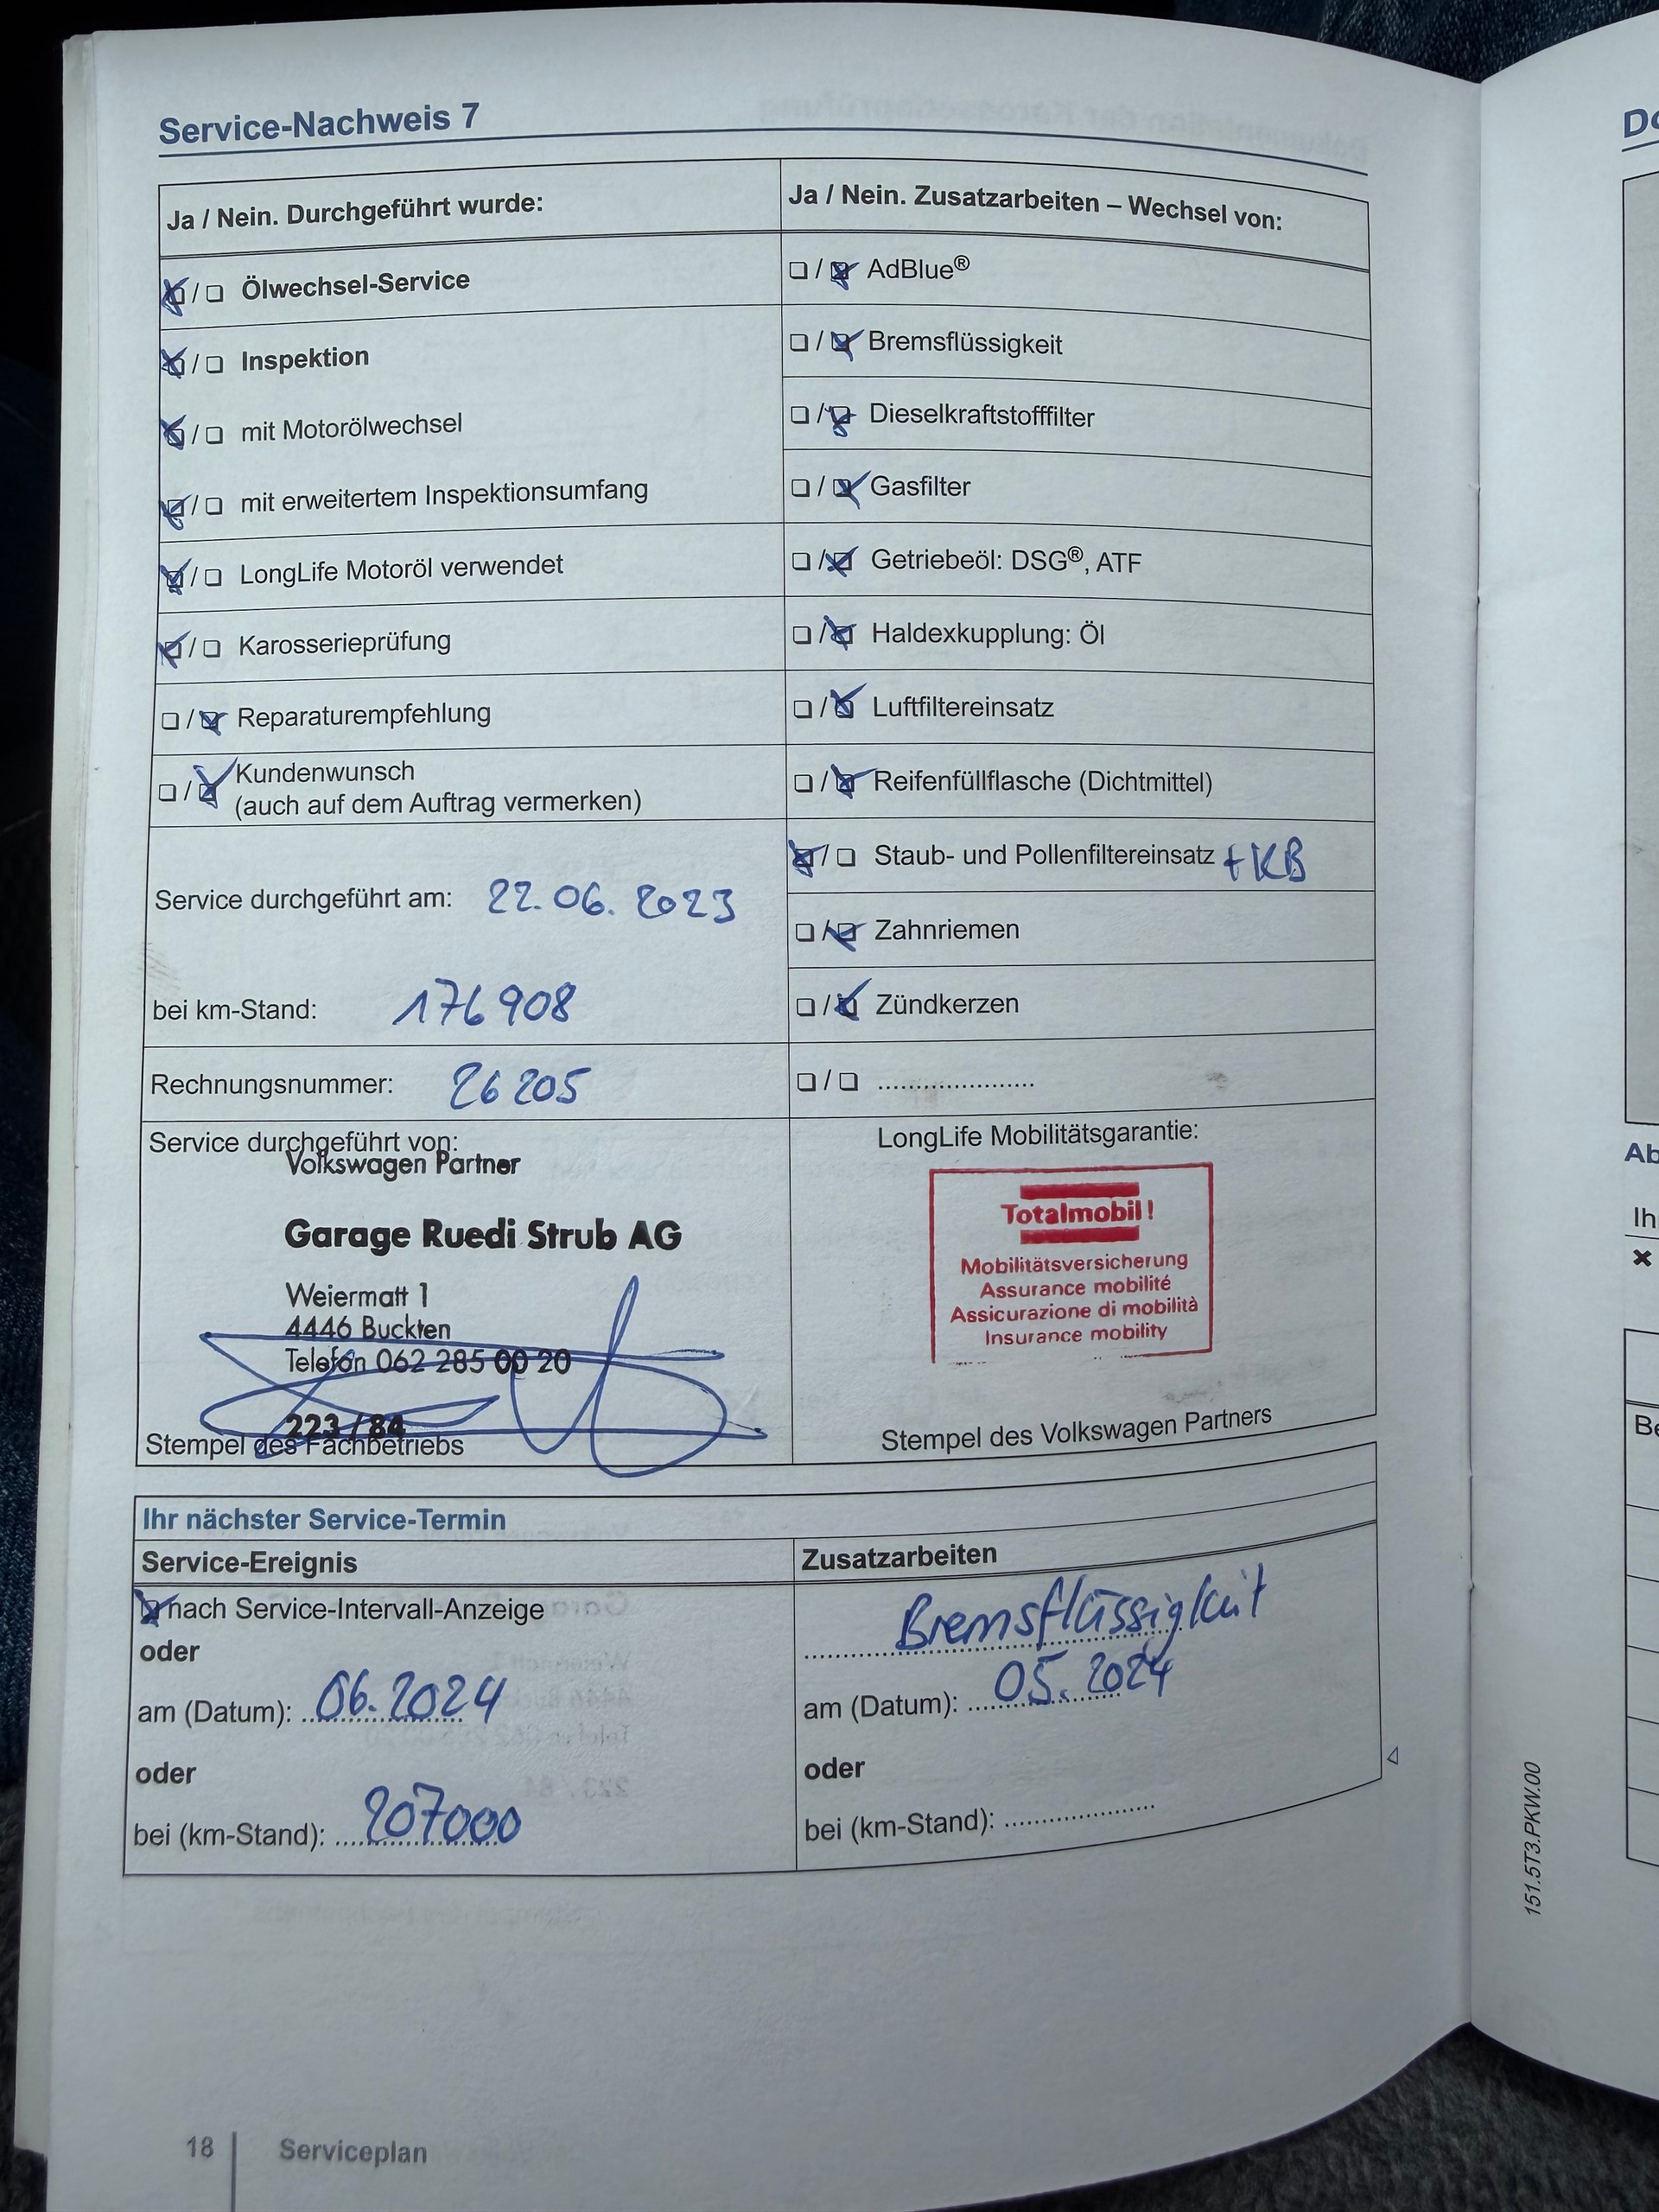 Service-Nachweis 7
Ja / Nein. Durchgeführt wurde:
☒ / ☐ Ölwechsel-Service
☒ / ☐ Inspektion
☒ / ☐ mit Motorölwechsel
☒ / ☐ mit erweitertem Inspektionsumfang
☒ / ☐ LongLife Motoröl verwendet
☒ / ☐ Karosserieprüfung
☐ / ☒ Reparaturempfehlung
☐ / ☒ Kundenwunsch
(auch auf dem Auftrag vermerken)
Service durchgeführt am: 22.06.2023
bei km-Stand: 176908
Rechnungsnummer: 26205
Service durchgeführt von:
Volkswagen Partner
Garage Ruedi Strub AG
Weiermatt 1
4446 Buckten
Telefon 062 285 00 20
223 / 84
Stempel des Fachbetriebs
Ja / Nein. Zusatzarbeiten – Wechsel von:
☐ / ☒ AdBlue®
☐ / ☒ Bremsflüssigkeit
☐ / ☒ Dieselkraftstofffilter
☐ / ☒ Gasfilter
☐ / ☒ Getriebeöl: DSG®, ATF
☐ / ☒ Haldexkupplung: Öl
☐ / ☒ Luftfiltereinsatz
☐ / ☒ Reifenfüllflasche (Dichtmittel)
☒ / ☐ Staub- und Pollenfiltereinsatz + KB
☐ / ☒ Zahnriemen
☐ / ☒ Zündkerzen
☐ / ☐ ......................
LongLife Mobilitätsgarantie:
Totalmobil!
Mobilitätsversicherung
Assurance mobilité
Assicurazione di mobilità
Insurance mobility
Stempel des Volkswagen Partners
Ihr nächster Service-Termin
Service-Ereignis
☒ nach Service-Intervall-Anzeige
oder
am (Datum): 06.2024
oder
bei (km-Stand): 207000
Zusatzarbeiten
Bremsflüssigkeit
am (Datum): 05.2024
oder
bei (km-Stand): ......................
151.5T3.PKW.00
18 Serviceplan
Ab
Ih
Be